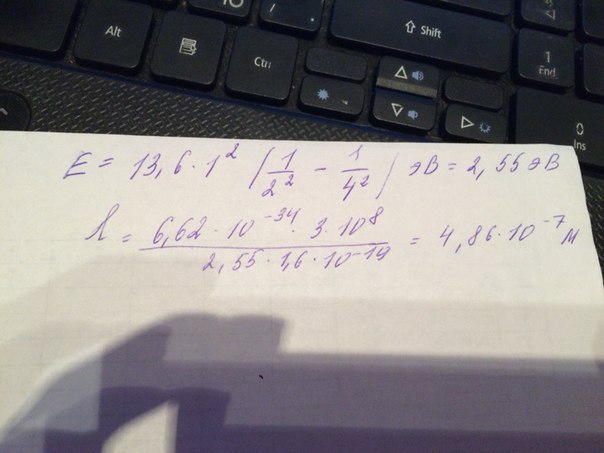 Alt
Ctrl
/
⇧ Shift
1
End
0
Ins
E = 13,6 · 1² (1/2² − 1/4²) эВ = 2,55 эВ
λ = 6,62 · 10⁻³⁴ · 3 · 10⁸ / 2,55 · 1,6 · 10⁻¹⁹ = 4,86 · 10⁻⁷ м